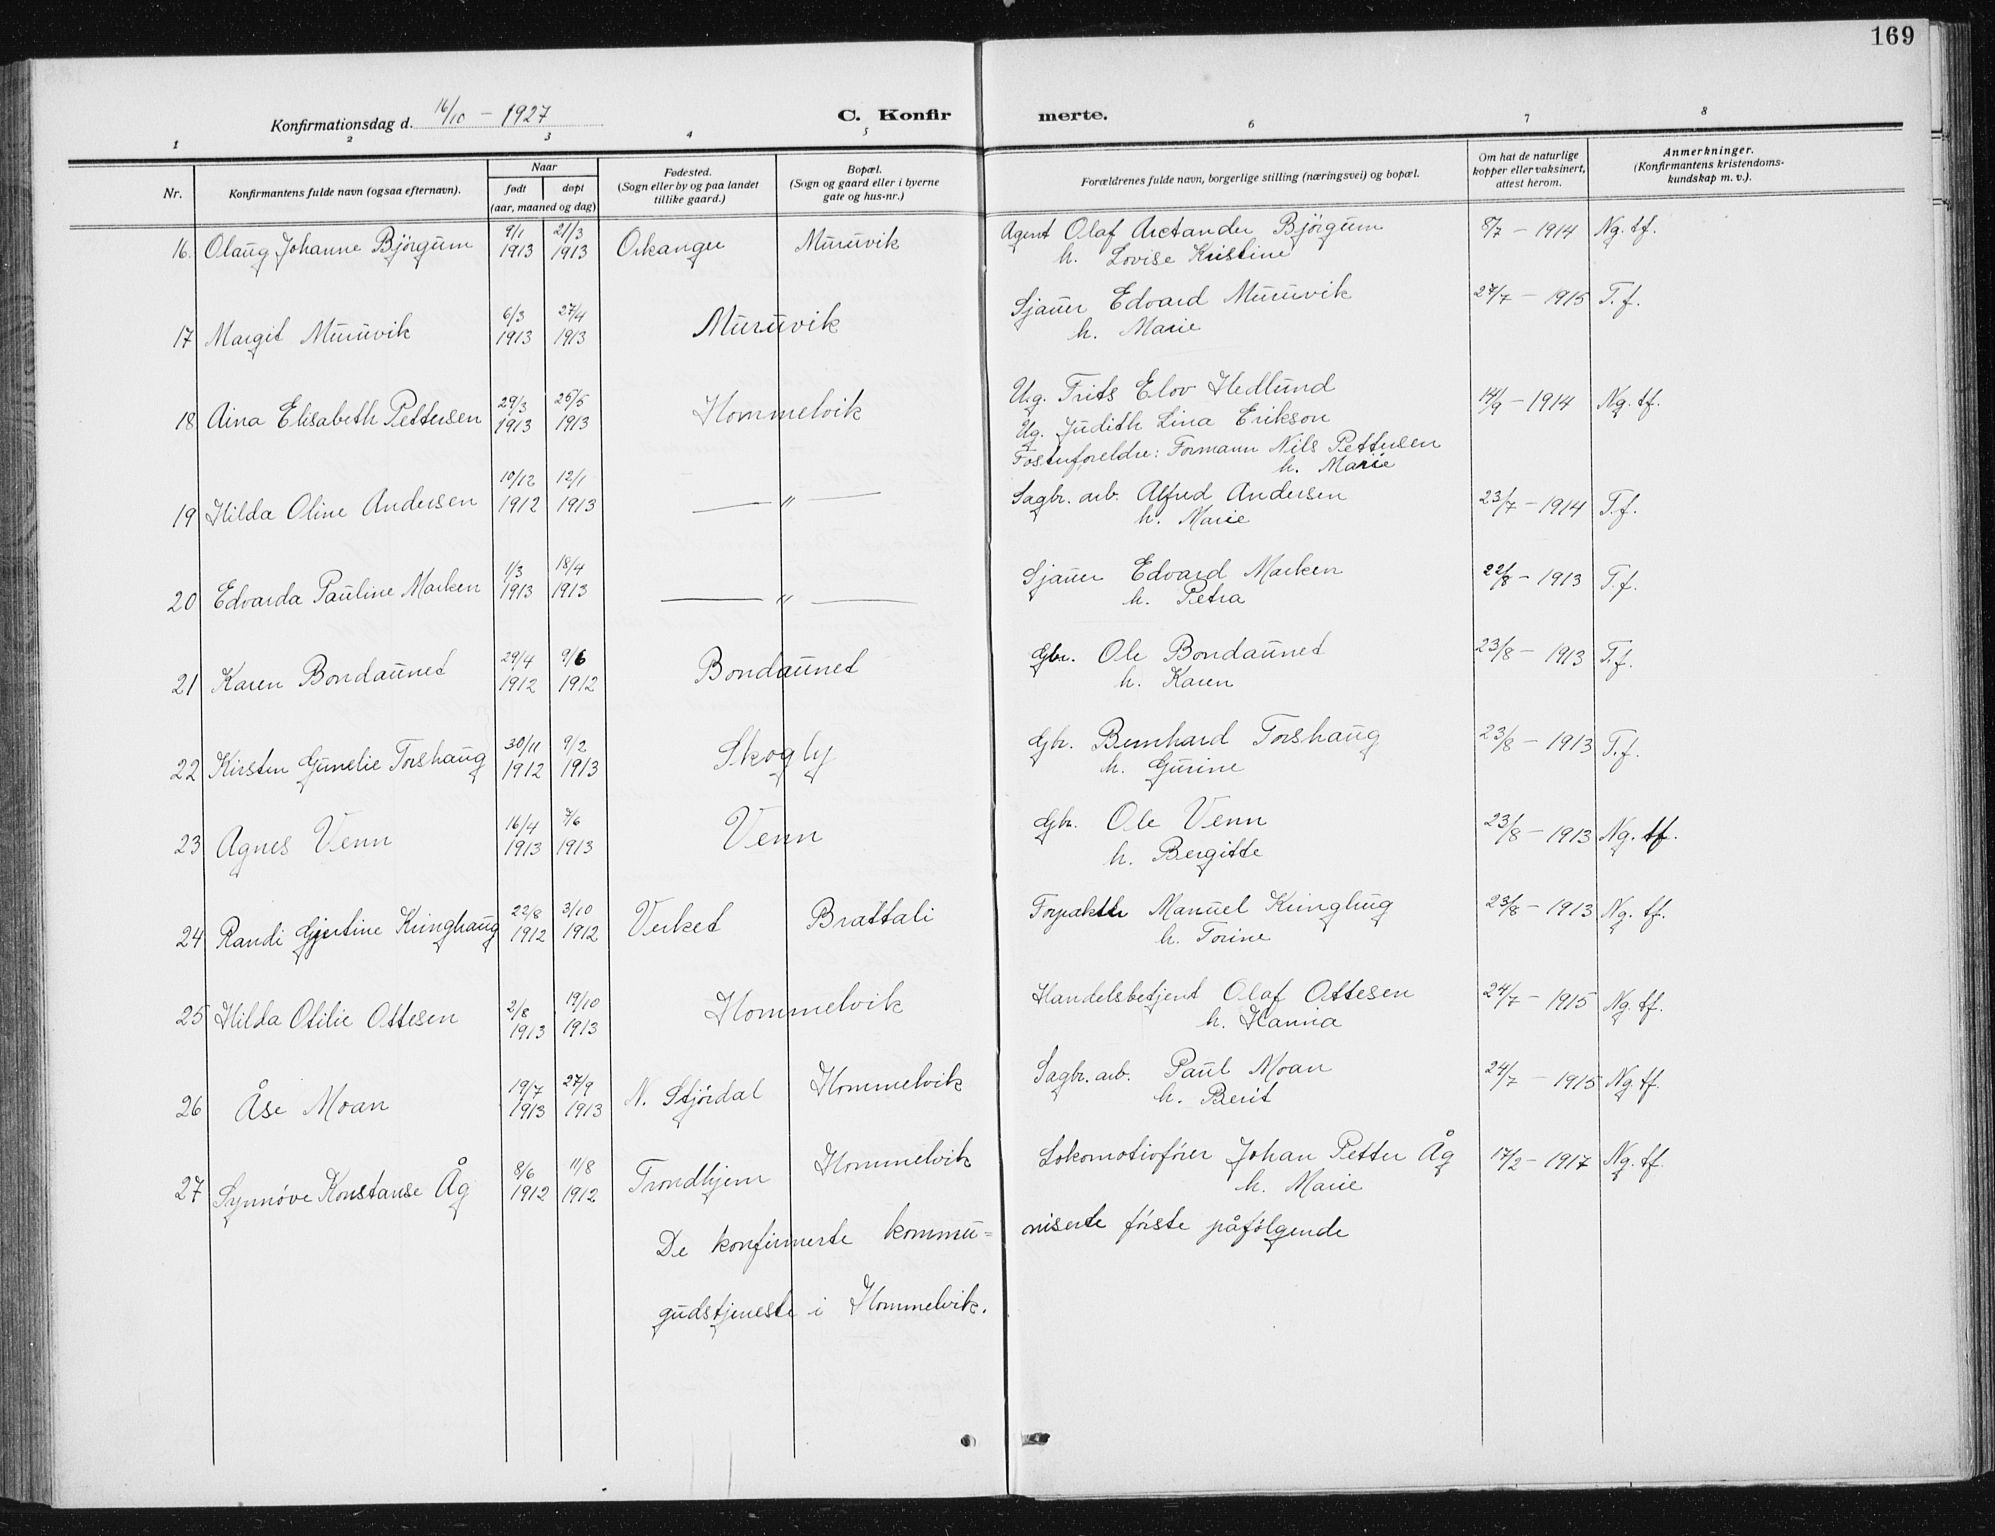 169
Konfirmationsdag d. 16/10 – 1927
C. Konfir merte.
1 2 3 4 5 6 7 8
Nr.
Konfirmantens fulde navn (ogsaa efternavn).
Naar
født døpt
(aar, maaned og dag)
Fødested.
(Sogn eller by og paa landet
tillike gaard.)
Bopæl.
(Sogn og gaard eller i byerne
gate og hus-nr.)
Forældrenes fulde navn, borgerlige stilling (næringsvei) og bopæl.
Om hat de naturlige
kopper eller vaksinert,
attest herom.
Anmerkninger.
(Konfirmantens kristendoms-
kundskap m. v.).
9/1 21/3
16. Olaug Johanne Björgum 1913 1913 Orkanger Muruvik Agent Olaf Arctander Björgum 8/7 – 1914 Ng. tf.
h. Lovise Kristine
6/3 27/4
17 Margit Muruvik 1913 1913 Muruvik Sjauer Edvard Muruvik 27/7 – 1915 T. f.
h. Marie
29/3 25/5
18 Aina Elisabeth Pettersen 1913 1913 Hommelvik Ug. Frits Elov Hedlund 14/9 – 1914 Ng. tf.
Ug. Judith Lina Erikson
Fosterforeldre: Formann Nils Pettersen
h. Marie
10/12 12/1
19 Hilda Oline Andersen 1912 1913 — " — Sagbr. arb. Alfred Andersen 23/7 – 1914 T. f.
h. Marie
1/3 18/4
20 Edvarda Pauline Marken 1913 1913 — " — Sjauer Edvard Marken 22/8 – 1913 T. f.
h. Petra
29/4 9/6
21 Karen Bondaunet 1912 1912 Bondaunet Gbr. Ole Bondaunet 23/8 – 1913 T. f.
h. Karen
30/11 9/2
22 Kirsten Gunelie Torshaug 1912 1913 Skogly Gbr. Bernhard Torshaug 23/8 – 1913 T. f.
h. Gurine
16/4 7/6
23 Agnes Venn 1913 1913 Venn Gbr. Ole Venn 23/8 – 1913 Ng. tf.
h. Bergitte
22/8 3/10
24 Randi Gjertine Kringhaug 1912 1912 Verket Brattali Forpakter Manuel Kringhug 23/8 – 1913 Ng. tf.
h. Torine
2/8 19/10
25 Hilda Otilie Ottesen 1913 1913 Hommelvik Handelsbetjent Olaf Ottesen 24/7 – 1915 Ng. tf.
h. Hanna
19/7 27/9
26 Åse Moan 1913 1913 N. Stjördal Hommelvik Sagbr. arb. Paul Moan 24/7 – 1915 Ng. tf.
h. Berit
8/6 11/8
27 Synnøve Konstanse Åg 1912 1912 Trondhjem Hommelvik Lokomotivfører Johan Petter Åg 17/2 – 1917 Ng. tf.
h. Marie
De konfirmerte kommu= niserte första påfølgende
gudstjeneste i Hommelvik.